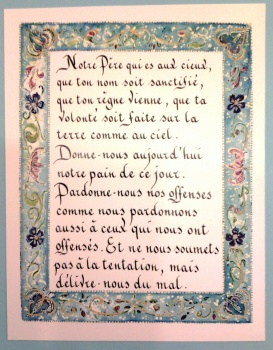 Notre Père qui es aux cieux,
que ton nom soit sanctifié,
que ton règne vienne, que ta
volonté soit faite sur la
terre comme au ciel.
Donne-nous aujourd'hui
notre pain de ce jour.
Pardonne-nous nos offenses
comme nous pardonnons
aussi à ceux qui nous ont
offensés. Et ne nous soumets
pas à la tentation, mais
délivre-nous du mal.